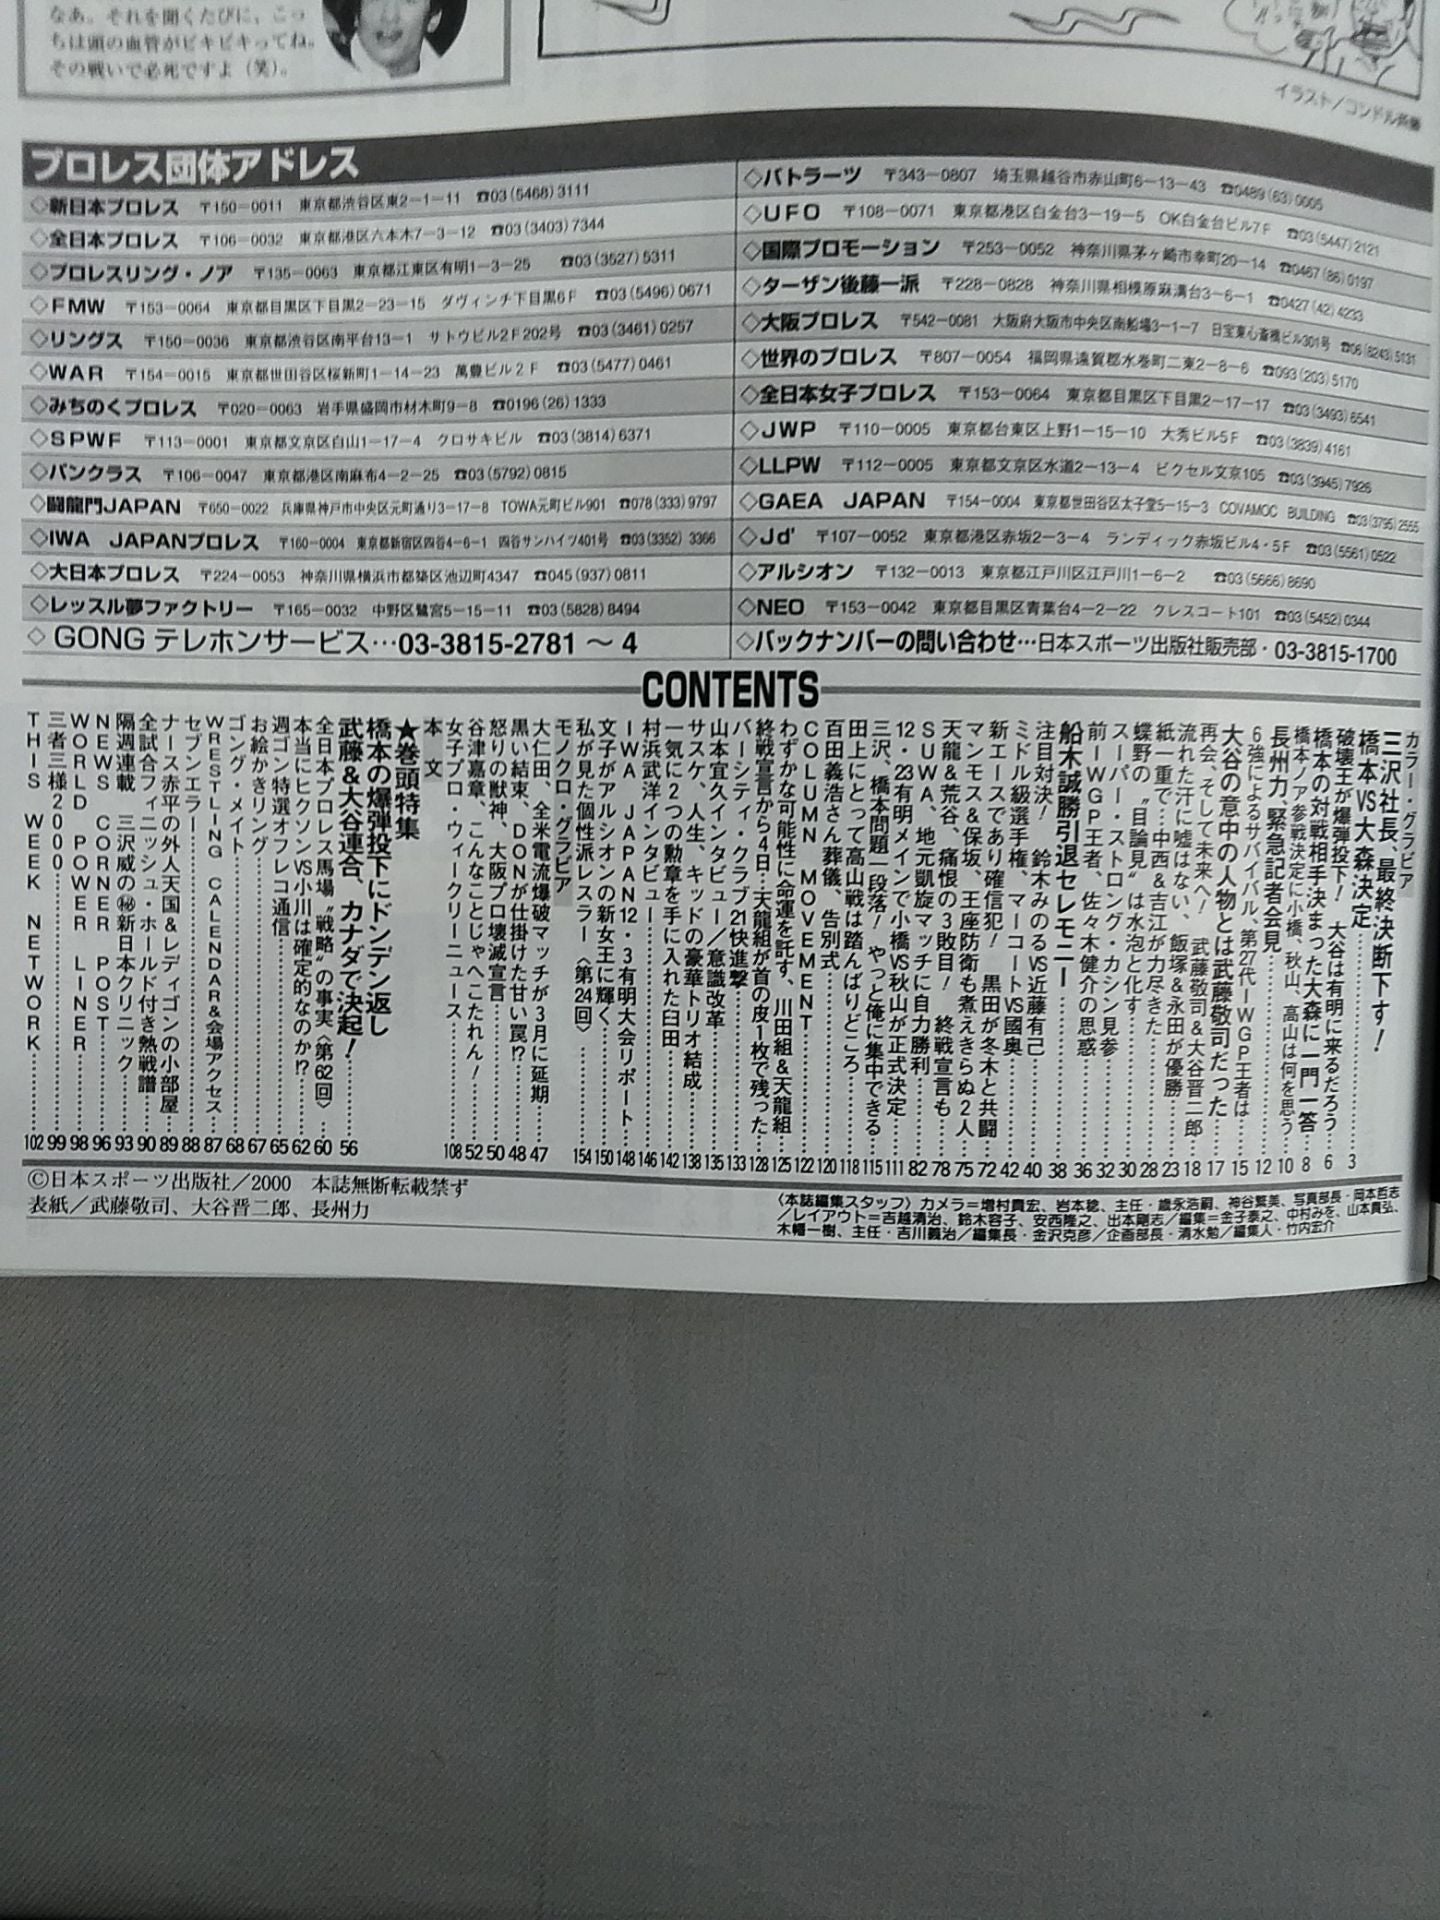 なあ。それを聞くたびに、こっ
ちは頭の血管がピキピキってね。
その戦いで必死ですよ(笑)。
イラスト/コンドル
プロレス団体アドレス
◇新日本プロレス 〒150-0011 東京都渋谷区東2-1-11 ☎03(5468)3111
◇全日本プロレス 〒106-0032 東京都港区六本木7-3-12 ☎03(3403)7344
◇プロレスリング・ノア 〒135-0063 東京都江東区有明1-3-25 ☎03(3527)5311
◇FMW 〒153-0064 東京都目黒区下目黒2-23-15 ダヴィンチ下目黒6F ☎03(5496)0671
◇リングス 〒150-0036 東京都渋谷区南平台13-1 サトウビル2F202号 ☎03(3461)0257
◇WAR 〒154-0015 東京都世田谷区桜新町1-14-23 萬豊ビル2F ☎03(5477)0461
◇みちのくプロレス 〒020-0063 岩手県盛岡市材木町9-8 ☎0196(26)1333
◇SPWF 〒113-0001 東京都文京区白山1-17-4 クロサキビル ☎03(3814)6371
◇パンクラス 〒106-0047 東京都港区南麻布4-2-25 ☎03(5792)0815
◇闘龍門JAPAN 〒650-0022 兵庫県神戸市中央区元町通り3-17-8 TOWA元町ビル901 ☎078(333)9797
◇IWA JAPANプロレス 〒160-0004 東京都新宿区四谷4-6-1 四谷サンハイツ401号 ☎03(3352)3366
◇大日本プロレス 〒224-0053 神奈川県横浜市都築区池辺町4347 ☎045(937)0811
◇レッスル夢ファクトリー 〒165-0032 中野区鷺宮5-15-11 ☎03(5828)8494
◇GONGテレホンサービス…03-3815-2781〜4
◇バトラーツ 〒343-0807 埼玉県越谷市赤山町6-13-43 ☎0489(63)0005
◇UFO 〒108-0071 東京都港区白金台3-19-5 OK白金台ビル7F ☎03(5447)2121
◇国際プロモーション 〒253-0052 神奈川県茅ヶ崎市幸町20-14 ☎0467(86)0197
◇ターザン後藤一派 〒228-0828 神奈川県相模原麻溝台3-6-1 ☎0427(42)4233
◇大阪プロレス 〒542-0081 大阪府大阪市中央区南船場3-1-7 日宝東心斎橋ビル301号 ☎06(6243)5131
◇世界のプロレス 〒807-0054 福岡県遠賀郡水巻町二東2-8-6 ☎093(203)5170
◇全日本女子プロレス 〒153-0064 東京都目黒区下目黒2-17-17 ☎03(3493)6541
◇JWP 〒110-0005 東京都台東区上野1-15-10 大秀ビル5F ☎03(3839)4161
◇LLPW 〒112-0005 東京都文京区水道2-13-4 ピクセル文京105 ☎03(3945)7926
◇GAEA JAPAN 〒154-0004 東京都世田谷区太子堂5-15-3 COVAMOC BUILDING ☎03(3795)2555
◇Jd' 〒107-0052 東京都港区赤坂2-3-4 ランディック赤坂ビル4・5F ☎03(5561)0522
◇アルシオン 〒132-0013 東京都江戸川区江戸川1-6-2 ☎03(5666)8690
◇NEO 〒153-0042 東京都目黒区青葉台4-2-22 クレスコート101 ☎03(5452)0344
◇バックナンバーの問い合わせ…日本スポーツ出版社販売部・03-3815-1700
CONTENTS
カラー・グラビア
三沢社長、最終決断下す!
橋本VS大森決定……3
破壊王が爆弾投下! 大谷は有明に来るだろう……6
橋本の対戦相手決まった大森に一問一答……8
橋本ノア参戦決定に小橋、秋山、高山は何を思う……10
長州力、緊急記者会見……12
6強によるサバイバル、第27代IWGP王者は
大谷の意中の人物とは武藤敬司だった……15
再会、そして未来へ! 武藤敬司&大谷晋二郎……17
流れた汗に嘘はない、飯塚&永田が優勝……18
紙一重で…中西&吉江が力尽きた……23
蝶野の〝目論見〟は水泡と化す……28
スーパー・ストロング・カシン見参……30
前IWGP王者、佐々木健介の思惑……32
船木誠勝引退セレモニー……36
注目対決! 鈴木みのるVS近藤有己……38
ミドル級選手権、マーコートVS國奥……40
新エースであり確信犯! 黒田が冬木と共闘……42
マンモス&保坂、王座防衛も煮えきらぬ2人……72
天龍&荒谷、痛恨の3敗目! 終戦宣言も……75
SUWA、地元凱旋マッチに自力勝利……78
12・23有明メインで小橋VS秋山が正式決定……82
三沢、橋本問題一段落! やっと俺に集中できる……111
田上にとって高山戦は踏んばりどころ……115
百田義浩さん葬儀、告別式……118
COLUMN MOVEMENT……120
わずかな可能性に命運を託す、川田組&天龍組……122
終戦宣言から4日…天龍組が首の皮1枚で残った……125
バーシティ・クラブ21快進撃……128
山本宜久インタビュー/意識改革……133
サスケ、人生、キッドの豪華トリオ結成……135
一気に2つの勲章を手に入れた臼田……138
村浜武洋インタビュー……142
IWA JAPAN12・3有明大会リポート……146
文子がアルシオンの新女王に輝く……148
私が見た個性派レスラー〈第24回〉……150
154
モノクロ・グラビア
大仁田、全米電流爆破マッチが3月に延期……47
黒い結束、DONが仕掛けた甘い罠!?……48
怒りの獣神、大阪プロ壊滅宣言……50
谷津嘉章、こんなことじゃへこたれん!……52
女子プロ・ウィークリーニュース……108
本文
★巻頭特集
橋本の爆弾投下にドンデン返し
武藤&大谷連合、カナダで決起!……56
全日本プロレス馬場〝戦略〟の事実〈第62回〉……60
本当にヒクソンVS小川は確定的なのか!?……62
週ゴン特選オフレコ通信……65
お絵かきリング……67
ゴング・メイト……68
WRESTLING CALENDAR&会場アクセス……87
セブンエラー……88
ナース赤平の外人天国&レディゴンの小部屋……89
全試合フィニッシュ・ホールド付き熱戦譜……90
隔週連載 三沢威の㊙新日本クリニック……93
NEWS CORNER POST……96
WORLD POWER LINER……98
三者三様2000……99
THIS WEEK NETWORK……102
©日本スポーツ出版社/2000 本誌無断転載禁ず
表紙/武藤敬司、大谷晋二郎、長州力
〈本誌編集スタッフ〉カメラ=増村貴宏、岩本稔、主任・歳永浩嗣、神谷繁美、写真部長・岡本哲志
/レイアウト=吉越清治、鈴木容子、安西隆之、出本剛志/編集=金子泰之、中村みを、山本貴弘、
木幡一樹、主任・吉川義治/編集長・金沢克彦/企画部長・清水勉/編集人・竹内宏介